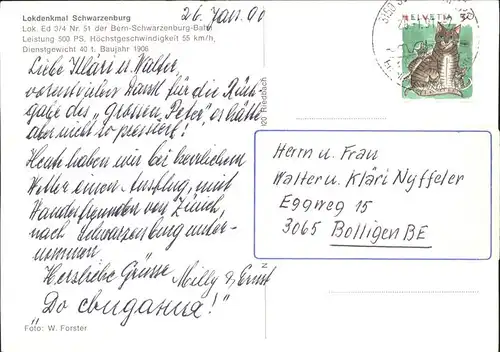 Lokdenkmal Schwarzenburg
Lok. Ed 3/4 Nr. 51 der Bern-Schwarzenburg-Bahn
Leistung 500 PS. Höchstgeschwindigkeit 55 km/h,
Dienstgewicht 40 t. Baujahr 1906
26. Jan. 90
Liebe Kläri u. Walter,
vorerst vielen Dank für die Rück-
gabe des „grossen Peter", es hätte
aber nicht so pressiert!
Heute haben wir bei herrlichem
Wetter einen Ausflug, mit
Wanderfreunden von Zürich,
nach Schwarzenburg unter-
nommen
Herzliche Grüsse Milly & Ernst
„До свидания!"
Foto: W. Forster
HELVETIA
Herrn u. Frau
Walter u. Kläri Nyffeler
Eggweg 15
3065 Bolligen BE